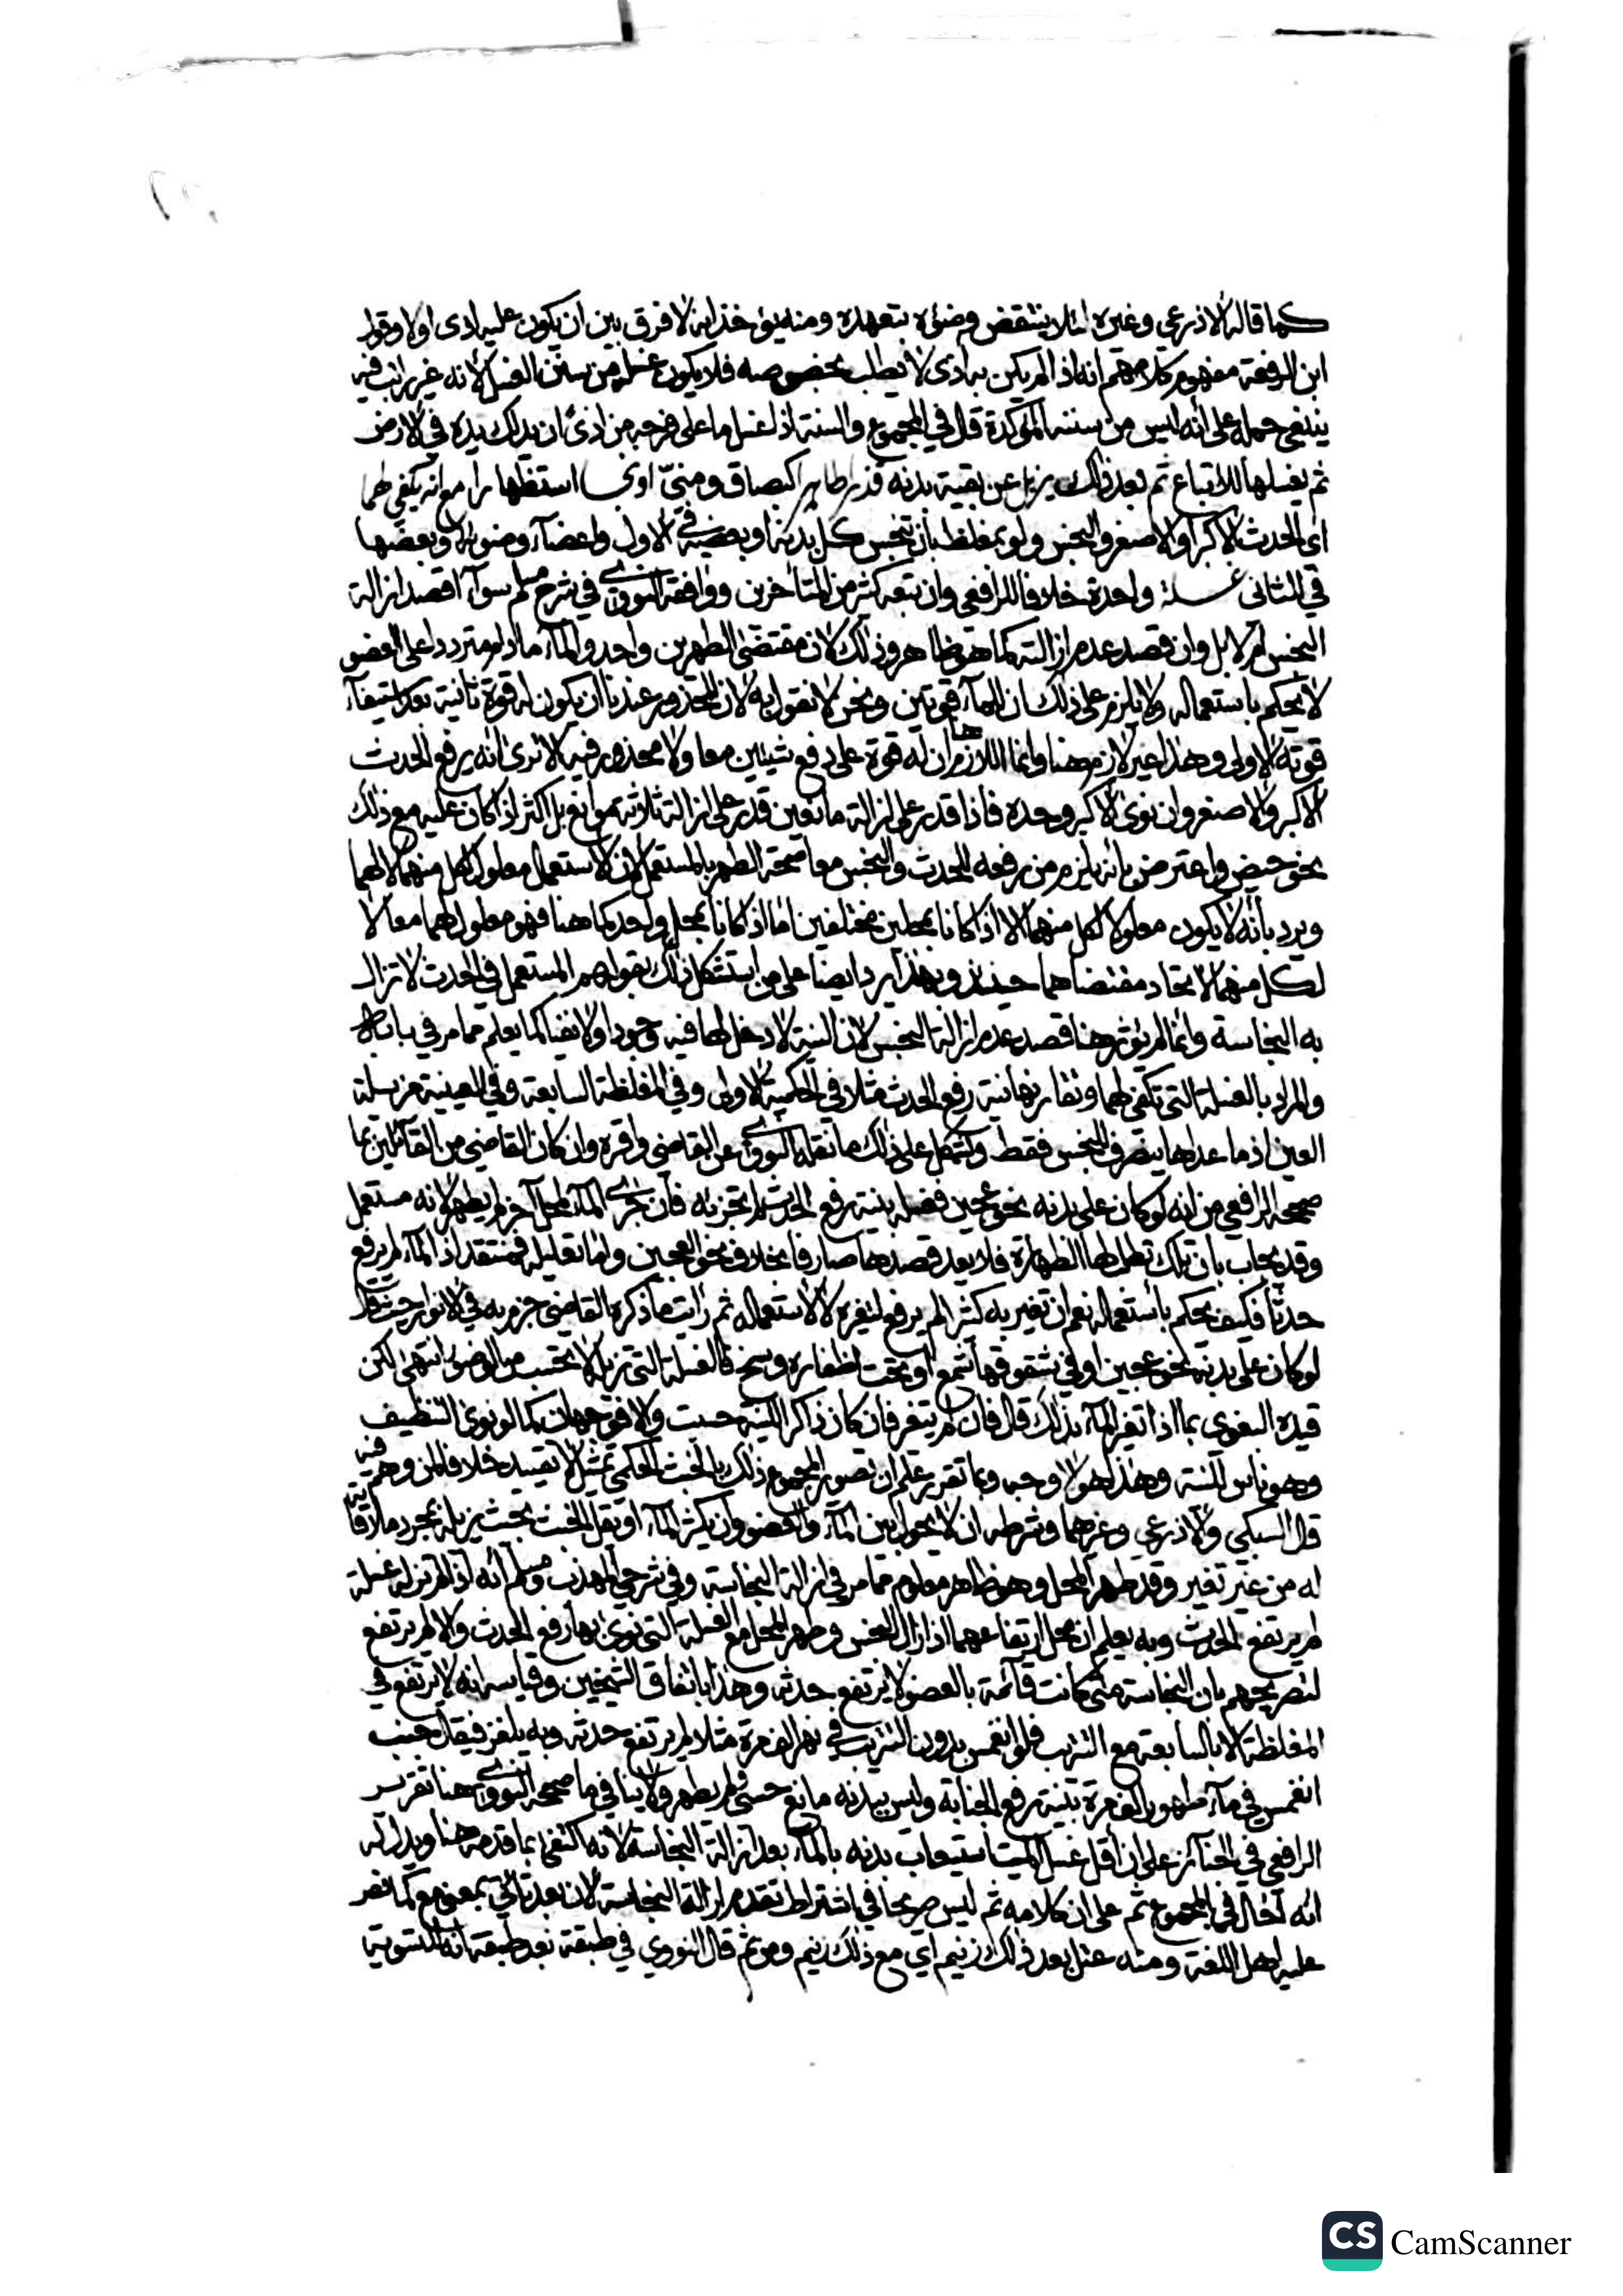 كما قاله الاذرعي وغيره لئلا ينتقض وضوءه بتعهده ومنه يؤخذ انه لا فرق بين ان يكون عليه اذى اولا وقول
ابن الرفعة مفهوم كلامهم انه اذا لم يكن به اذى لا يطلب بخصوصه فلا يكون غسله من سنن الغسل لأنه غير راتب فيه
ينبغي حمله على أنه ليس من سننه المؤكدة قال في المجموع والسنة اذا غسل ما على فرجه من اذى ان يدلك يده في الارض
ثم يغسلها للاتباع ثم بعد ذلك يزيل عن بقية بدنه قذرا طاهرا كبصاق ومني استظهارا مع انه يكفي لهما
اي الحدث الاكبر او الاصغر والنجس ولو بمغلظ بأن تنجس كل بدنه او بعضه في الاول واعضاء وضوئه او بعضها
في الثاني غسلة واحدة خلافا للرافعي وان تبعه كثير من المتأخرين ووافقه النووي في شرح مسلم سواء اقصد ازالة
النجس ام لا بل وان قصد عدم ازالته كما هو ظاهر وذلك لان مقتضى الطهرين واحد والماء ما دام مترددا على العضو
لا يحكم باستعماله ولا يلزم على ذلك ان للماء قوتين ونحن لا نقول به لان المحذور عندنا ان يكون له قوة ثانية بعد استيفاء
قوته الاولى وهذا غير لازم هنا وانما اللازم هنا ان له قوة على دفع شيئين معا ولا محذور فيه الا ترى انه يرفع الحدث
الاكبر والاصغر وان نوى الاكبر وحده فاذا قدر على ازالة مانعين قدر على ازالة ثلاثة موانع بل اكثر اذا كان عليه مع ذلك
نحو حيض واعترض بانه يلزم من رفعه للحدث والنجس معا صحة الطهر بالمستعمل لان الاستعمال معلول لكل منهما لا لهما
ويرد بأنه لا يكون معلولا لكل منهما الا اذا كانا بمحلين مختلفين اما اذا كانا بمحل واحد كما هنا فهو معلول لهما معا لا
لكل منهما لاتحاد مقتضاهما حينئذ وبهذا يرد ايضا على من استشكل ذلك بقولهم المستعمل في الحدث لا تزال
به النجاسة وانما لم يؤثر هنا قصد عدم ازالة النجس لان النية لا دخل لها فيه وجودا ولا نفيا كما يعلم مما مر في بابه
والمراد بالغسلة التي تكفي لهما وتقارنها نية رفع الحدث مثلا في الحكمية الاولى وفي المغلظة السابعة وفي العينية مزيلة
العين اذ ما عداها ينصرف للنجس فقط ويشكل على ذلك ما نقله النووي عن القاضي واقره وان كان القاضي من القائلين بما
صححه الرافعي من انه لو كان على بدنه نحو عجين فغسله بنية رفع الحدث لم تجزئه فان جرى الماء لمحل آخر لم يطهر لانه مستعمل
وقد يجاب بان تلك تطلب لها الطهارة فلا يعد قصدها صارفا بخلاف نحو العجين واما تعليله فمنتقد اذ الماء لم يرفع
حدثا فكيف يحكم باستعماله نعم ان تغير به كثيرا لم يرفع لتغيره لا لاستعماله ثم رأيت ما ذكره القاضي جزم به في الانوار حيث قال
لو كان على بدنه نحو عجين او في شقوقها شمع او تحت اظفاره وسخ فالغسلة التي تزيله لا تحتسب من الوضوء انتهى لكن
قيده البغوي بما اذا تغير الماء بذلك قال فان لم يتغير فان كان ذاكرا للنية حسبت والا فوجهان كما لو نوى التنظيف
وهو ناس للنية وهذا هو الاوجه وبما تقرر علم ان تصوير المجموع ذلك بالخبث الحكمي تمثيل لا تقييد خلافا لمن وهم فيه
قال السبكي والاذرعي وغيرهما وشرطه ان لا يحول بين الماء والعضو وان يكثر الماء او يقل الخبث بحيث يزيله بمجرد ملاقاته
له من غير تغير وقد طهر المحل وهو ظاهر معلوم مما مر في ازالة النجاسة وفي شرحي المهذب ومسلم أنه اذا لم تزله غسلة
لم يرتفع الحدث وبه يعلم ان محل ارتفاعهما اذا زال النجس وطهر المحل مع الغسلة التي نوى بها رفع الحدث والا لم يرتفع
لتصريحهم بان النجاسة متى كانت قائمة بالعضو لا يرتفع حدثه وهذا باتفاق الشيخين وقياسه انه لا يرتفع في
المغلظة الا بالسابعة مع التتريب فلو انغمس بدون التتريب في نهر الف مرة مثلا لم يرتفع حدثه وبه يلغز فيقال جنب
انغمس في ماء طهور الف مرة بنية رفع الجنابة وليس ببدنه مانع حسي ولم يطهر ولا ينافي ما صححه النووي هنا تقرير
الرافعي في الجنائز على ان أقل غسل الميت استيعاب بدنه بالماء بعد ازالة النجاسة لانه اكتفى بما قدمه هنا ويدل له
انه احال في المجموع ثم على ان كلامه ثم ليس صريحا في اشتراط تقدم ازالة النجاسة لان بعد تأتي بمعنى مع كما نص
عليه اهل اللغة ومنه عتل بعد ذلك زنيم اي مع ذلك زنيم ومن ثم قال النووي في طبقة بعد طبقة انه للتسوية
CS CamScanner